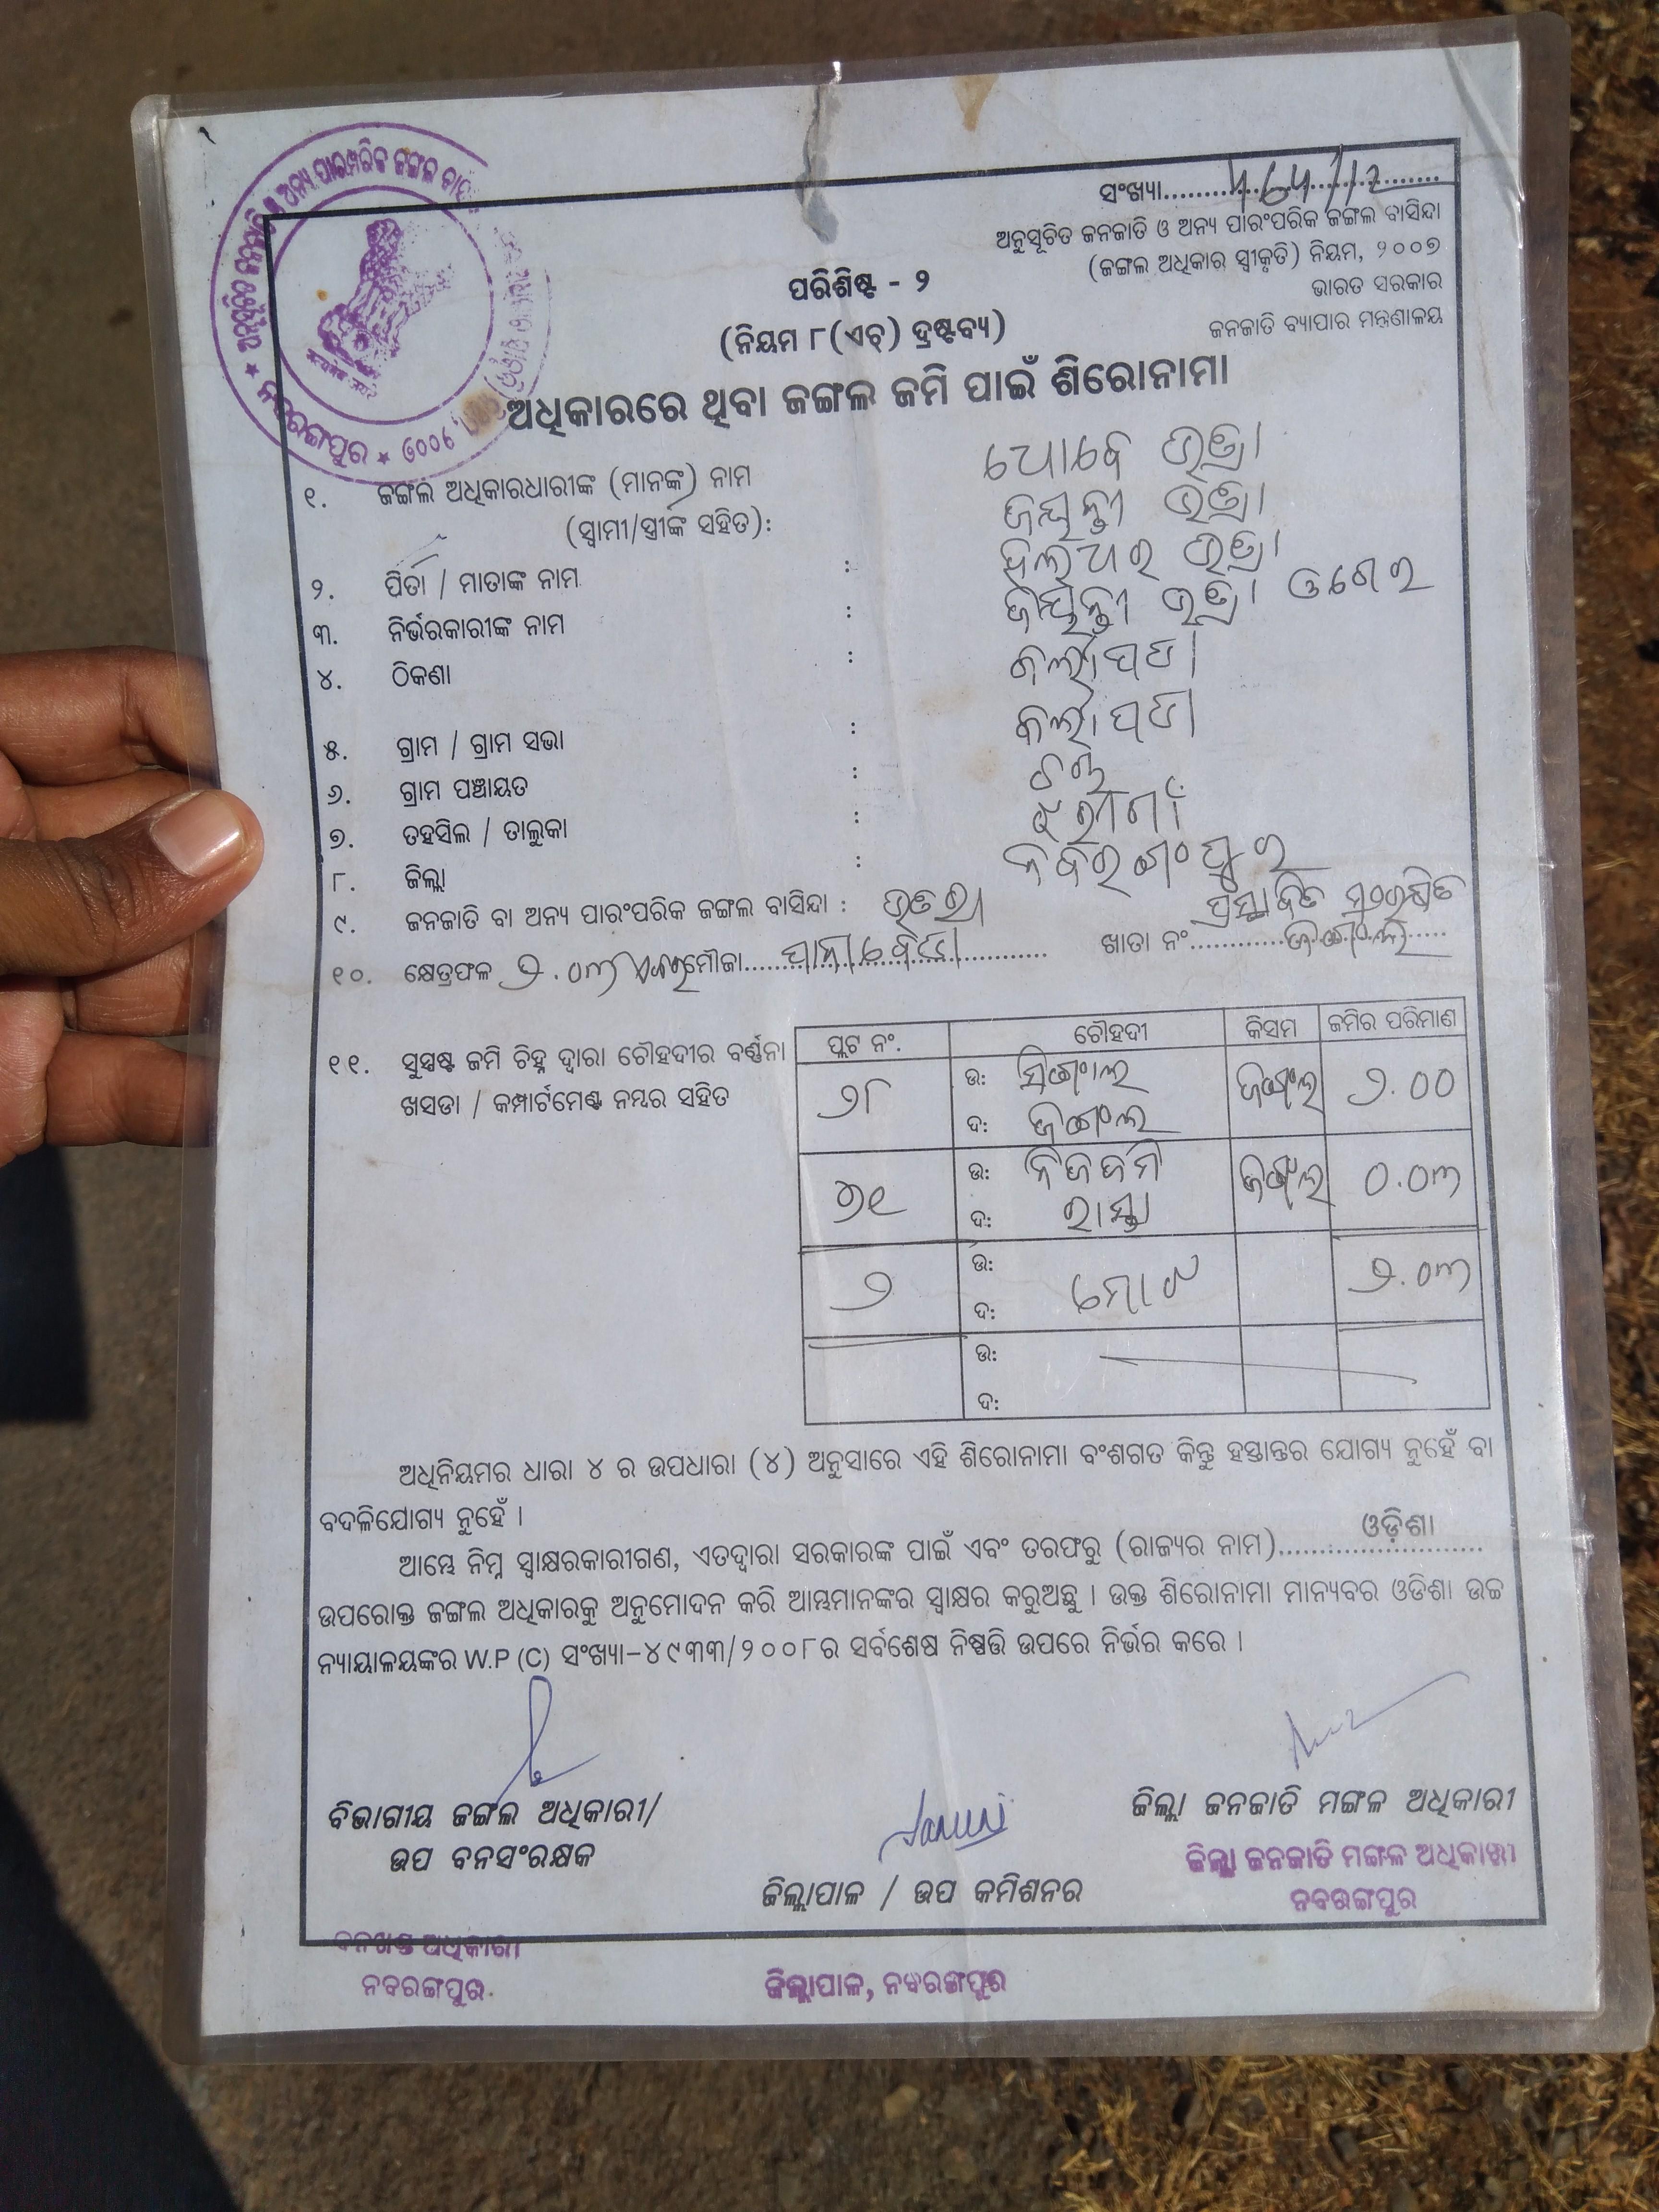 ସଂଖ୍ୟା
ଅନୁସୂଚିତ ଜନଜାତି ଓ ଅନ୍ୟ ପାରଂପରିକ ଜଙ୍ଗଲ ବାସିନ୍ଦା
(ଜଙ୍ଗଲ ଅଧିକାର ସ୍ୱୀକୃତି) ନିୟମ, ୨୦୦୭
ଭାରତ ସରକାର
ଜନଜାତି ବ୍ୟାପାର ମନ୍ତ୍ରଣାଳୟ
ପରିଶିଷ୍ଟ - ୨
(ନିୟମ ୮(ଏଚ୍) ଦ୍ରଷ୍ଟବ୍ୟ)
ଅଧିକାରରେ ଥିବା ଜଙ୍ଗଲ ଜମି ପାଇଁ ଶିରୋନାମା
ନବରଙ୍ଗପୁର
୧. ଜଙ୍ଗଲ ଅଧିକାରଧାରୀଙ୍କ (ମାନଙ୍କ) ନାମ
(ସ୍ୱାମୀ/ସ୍ତ୍ରୀଙ୍କ ସହିତ):
ଜୟନ୍ତୀ ଭତ୍ରା
୨. ପିତା / ମାତାଙ୍କ ନାମ : ଭତ୍ରା
୩. ନିର୍ଭରକାରୀଙ୍କ ନାମ : ଜୟନ୍ତୀ ଭତ୍ରା
୪. ଠିକଣା :
୫. ଗ୍ରାମ / ଗ୍ରାମ ସଭା :
୬. ଗ୍ରାମ ପଞ୍ଚାୟତ :
୭. ତହସିଲ / ତାଲୁକା : ଝରୀଗାଁ
୮. ଜିଲ୍ଲା : ନବରଙ୍ଗପୁର
୯. ଜନଜାତି ବା ଅନ୍ୟ ପାରଂପରିକ ଜଙ୍ଗଲ ବାସିନ୍ଦା : ଭତରା
ପ୍ରସ୍ତାବିତ ସଂରକ୍ଷିତ
୧୦. କ୍ଷେତ୍ରଫଳ ୨.୦୩ ମୌଜା ଖାତା ନଂ ଜଙ୍ଗଲ
ପ୍ଲଟ ନଂ. ଚୌହଦୀ କିସମ ଜମିର ପରିମାଣ
୧୧. ସୁସ୍ପଷ୍ଟ ଜମି ଚିହ୍ନ ଦ୍ୱାରା ଚୌହଦୀର ବର୍ଣ୍ଣନା
ଖସଡା / କମ୍ପାର୍ଟମେଣ୍ଟ ନମ୍ବର ସହିତ
୨୮ ଉ: ଜଙ୍ଗଲ ୨.୦୦
ଦ: ଜଙ୍ଗଲ
୭୧ ଉ: ନିଜ ଜମି ଜଙ୍ଗଲ ୦.୦୩
ଦ: ରାସ୍ତା
୨ ଉ: ମୋଟ ୨.୦୩
ଦ:
ଉ:
ଦ:
ଅଧିନିୟମର ଧାରା ୪ ର ଉପଧାରା (୪) ଅନୁସାରେ ଏହି ଶିରୋନାମା ବଂଶଗତ କିନ୍ତୁ ହସ୍ତାନ୍ତର ଯୋଗ୍ୟ ନୁହେଁ ବା
ବଦଳିଯୋଗ୍ୟ ନୁହେଁ ।
ଆମ୍ଭେ ନିମ୍ନ ସ୍ୱାକ୍ଷରକାରୀଗଣ, ଏତଦ୍ୱାରା ସରକାରଙ୍କ ପାଇଁ ଏବଂ ତରଫରୁ (ରାଜ୍ୟର ନାମ) ଓଡ଼ିଶା
ଉପରୋକ୍ତ ଜଙ୍ଗଲ ଅଧିକାରକୁ ଅନୁମୋଦନ କରି ଆମ୍ଭମାନଙ୍କର ସ୍ୱାକ୍ଷର କରୁଅଛୁ । ଉକ୍ତ ଶିରୋନାମା ମାନ୍ୟବର ଓଡିଶା ଉଚ୍ଚ
ନ୍ୟାୟାଳୟଙ୍କର W.P (C) ସଂଖ୍ୟା–୪୯୩୩/୨୦୦୮ର ସର୍ବଶେଷ ନିଷ୍ପତ୍ତି ଉପରେ ନିର୍ଭର କରେ ।
ବିଭାଗୀୟ ଜଙ୍ଗଲ ଅଧିକାରୀ/
ଉପ ବନସଂରକ୍ଷକ
ଜିଲ୍ଲାପାଳ / ଉପ କମିଶନର
ଜିଲ୍ଲା ଜନଜାତି ମଙ୍ଗଳ ଅଧିକାରୀ
ଜିଲ୍ଲା ଜନଜାତି ମଙ୍ଗଳ ଅଧିକାରୀ
ନବରଙ୍ଗପୁର
ବନଖଣ୍ଡ ଅଧିକାରୀ
ନବରଙ୍ଗପୁର
ଜିଲ୍ଲାପାଳ, ନବରଙ୍ଗପୁର